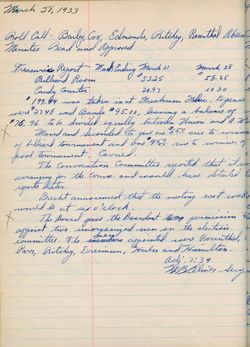 March 28, 1933
Roll Call - Bailey, Cox, Edmonds, Ritchy, Rosenthal Absent
Minutes Read and Approved
Treasurer's Report - Week Ending March 21 March 28
Billiard Room $53.25 58.25
Candy Counter 20.97 10.30
was taken in at Freshman Mixer. Expenses
were and Bands $95.00, leaving a balance of
$16.96 to be divided equally between Union and
Moved and Seconded to put on $5.00 to winner
of billiard tournament and to winner of
pool tournament, Carried.
The Convocation Committee reported that
arranging for the and would have detailed
reports later.
Brecht announced that the meeting next week
would be at o'clock.
The Board gave the President permission
appoint two unorganized men on the election
committee. The appointed were Rosenthal,
Parr, Ritchy, and Hamilton.
Adj. 7:39
Secy.